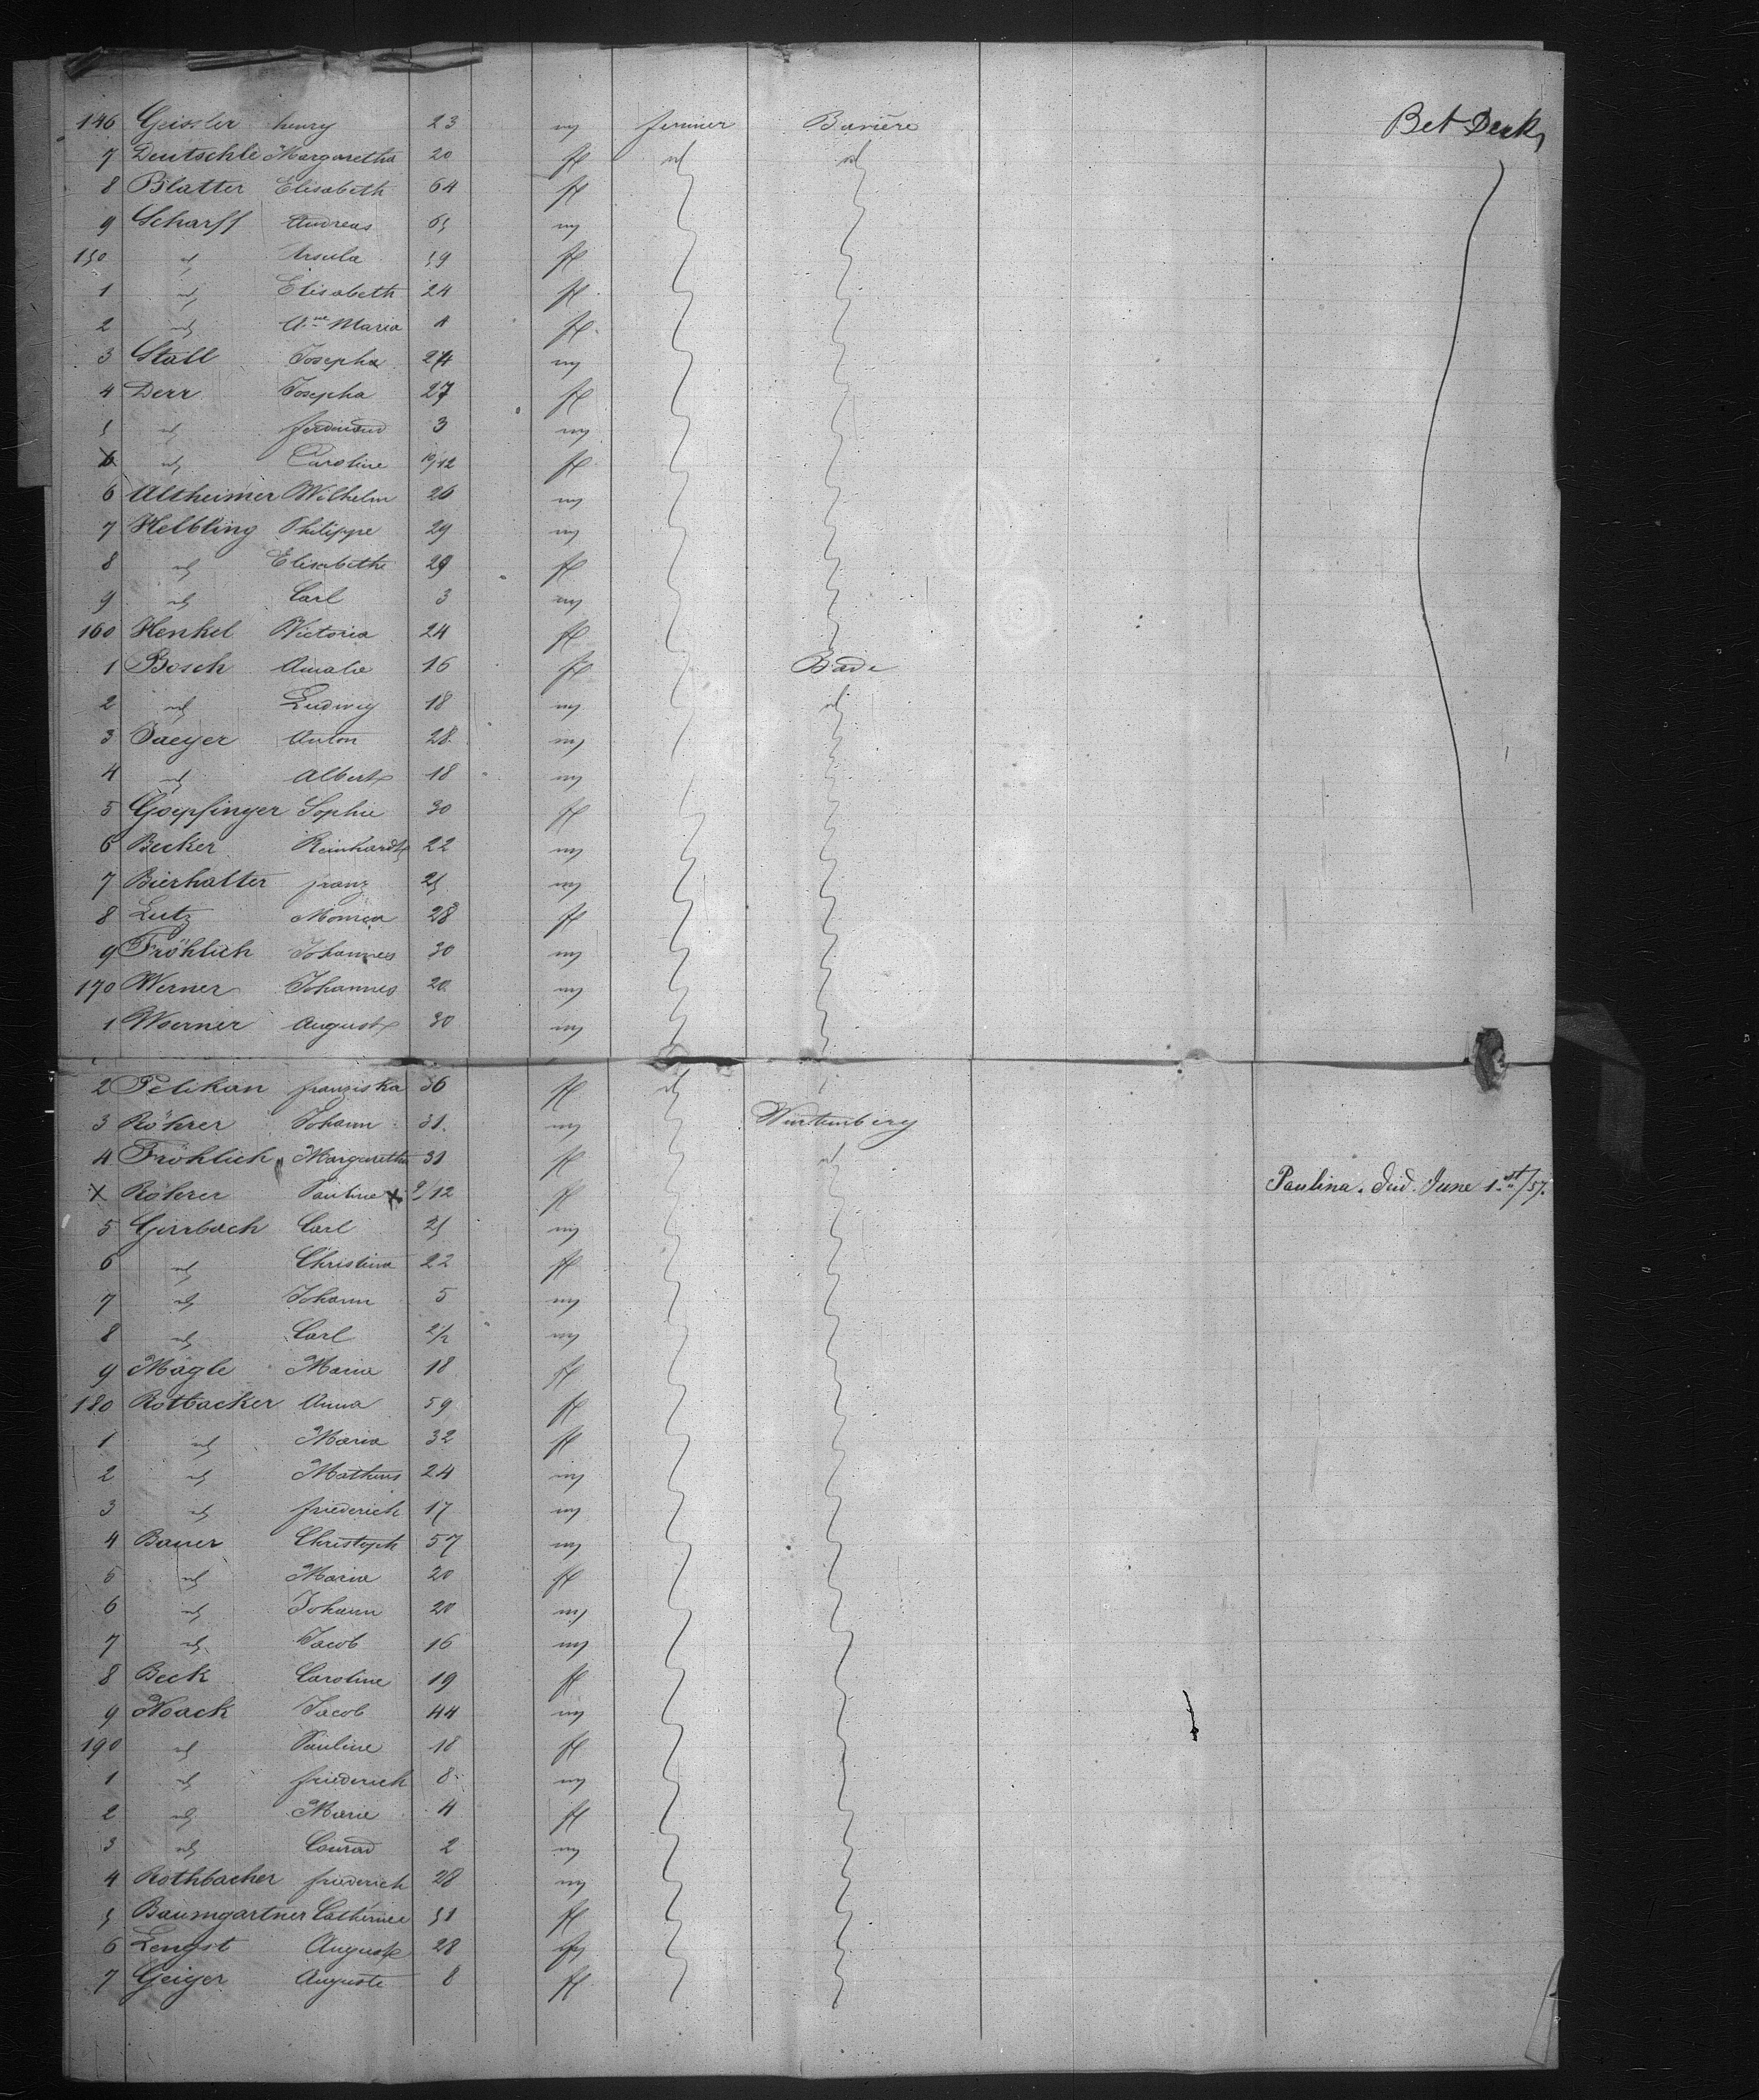 146 Geissler henry 23 m fermier Bavière Bet Deck
7 Deutschle Margaretha 20 f id id
8 Blatter Elisabeth 64 f
9 Scharff Andreas 65 m
150 id Ursula 59 f
1 id Elisabeth 24 f
2 id Anne Maria 4 f
3 Stall Josepha 24 m
4 Derr Josepha 27 f
5 id ferdinand 3 m
id Caroline 10/12 f
6 Altheimer Wilhelm 26 m
7 Helbling Philippe 29 m
8 id Elisabethe 29 f
9 id Carl 3 m
160 Henkel Victoria 24 f
1 Bosch Amalie 16 f Bade
2 id Ludwig 18 m id
3 Jaeger Anton 28 m
4 id Albert 18 m
5 Goepfinger Sophie 30 f
6 Becker Reinhardt 22 m
7 Bierhalter franz 25 m
8 Lutz Monica 28 f
9 Fröhlich Johannes 30 m
170 Werner Johannes 20 m
1 Woerner August 30 m
2 Pelikan franziska 36 f id
3 Röhrer Johann 31 m Wurtemberg
4 Fröhlich Margaretha 31 f id
X Röhrer Pauline X 9/12 f Paulina. Died. June 1st/57.
5 Girrbach Carl 25 m
6 id Christina 22 f
7 id Johann 5 m
8 id Carl 2/12 m
9 Mägle Maria 18 f
180 Rotbacker Anna 59 f
1 id Maria 32 f
2 id Matheus 24 m
3 id friederich 17 m
4 Bauer Christoph 57 m
5 id Maria 20 f
6 id Johann 20 m
7 id Jacob 16 m
8 Beck Caroline 19 f
9 Noack Jacob 44 m
190 id Pauline 18 f
1 id friederich 8 m
2 id Marie 4 f
3 id Conrad 2 m
4 Rothbacher friederich 28 m
5 Baumgartner Catherine 51 f
6 Lengst August 28 m
7 Geiger Auguste 8 f